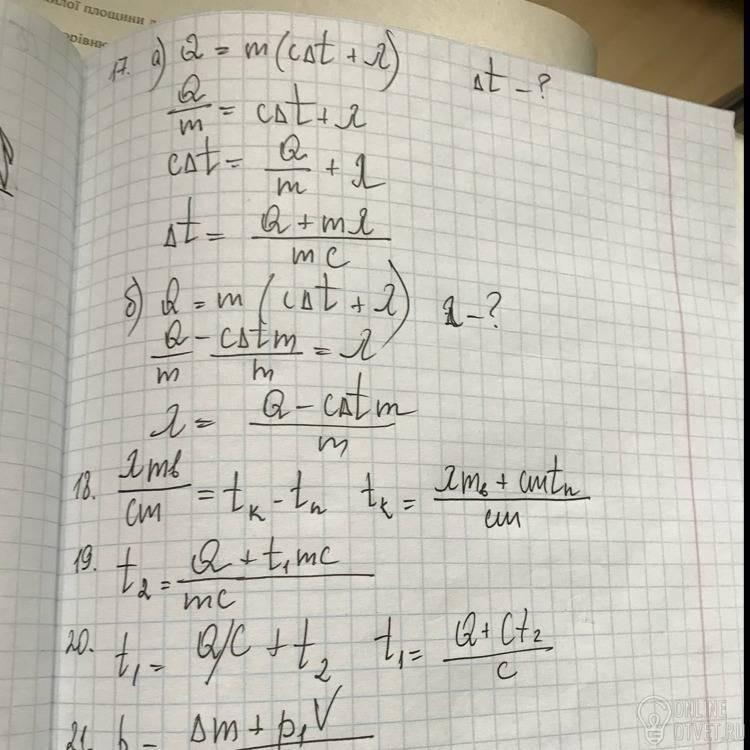 лої площини
орівню
17. а) Q = m(cΔt + λ) Δt - ?
Q/m = cΔt + λ
cΔt = Q/m + λ
Δt = (Q + mλ)/(mc)
б) Q = m(cΔt + λ) λ - ?
Q/m - cΔtm/m = λ
λ = (Q - cΔtm)/m
18. λmв/cm = tк - tп tк = (λmв + cmtп)/cm
19. t₂ = (Q + t₁mc)/mc
20. t₁ = Q/C + t₂ t₁ = (Q + Ct₂)/c
21. Δm + p₁V
ONLINE
OTVET.RU